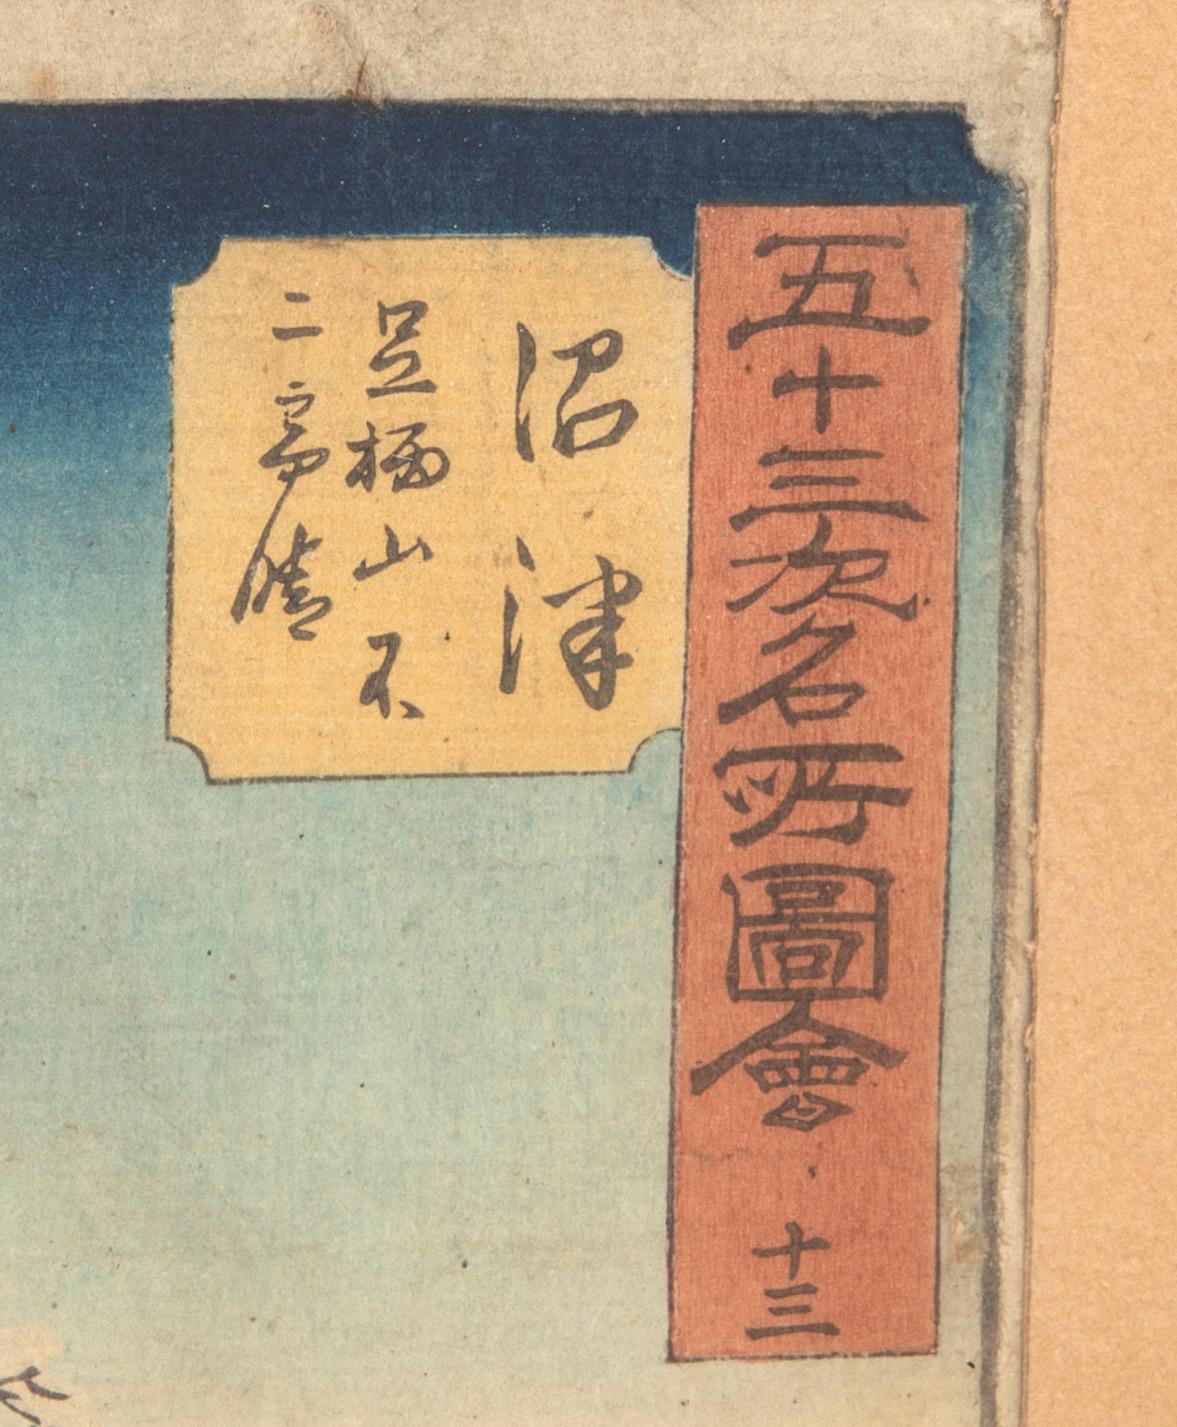 五十三次名所圖會 十三
沼津
足柄山不
二雪晴